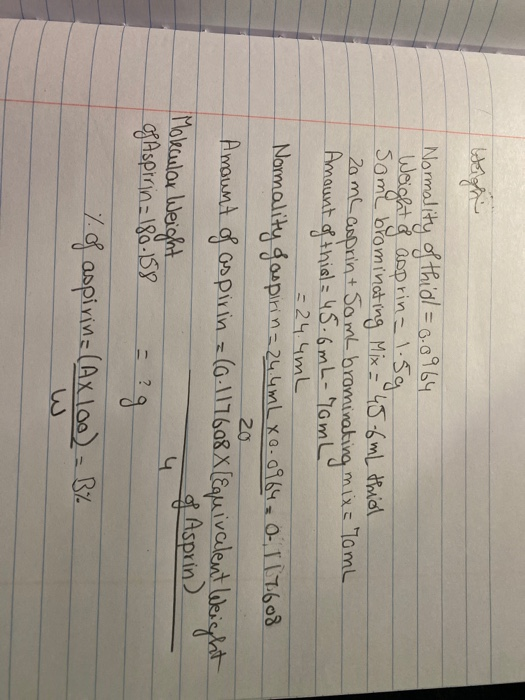 Weight
Normality of thiol = 0.0964
Weight of asprin = 1.5g
50mL brominating Mix = 45.6mL thiol
20mL asprin + 50mL brominating mix = 70mL
Amount of thiol = 45.6mL - 70mL
= 24.4mL
Normality of aspirin = 24.4mL x 0.0964 = 0.117608
20
Amount of aspirin = (0.117608 X [Equivalent Weight
of Asprin)
4
Molecular Weight
of Aspirin = 180.158 = ? g
% of aspirin = (A X 100) = B%
W